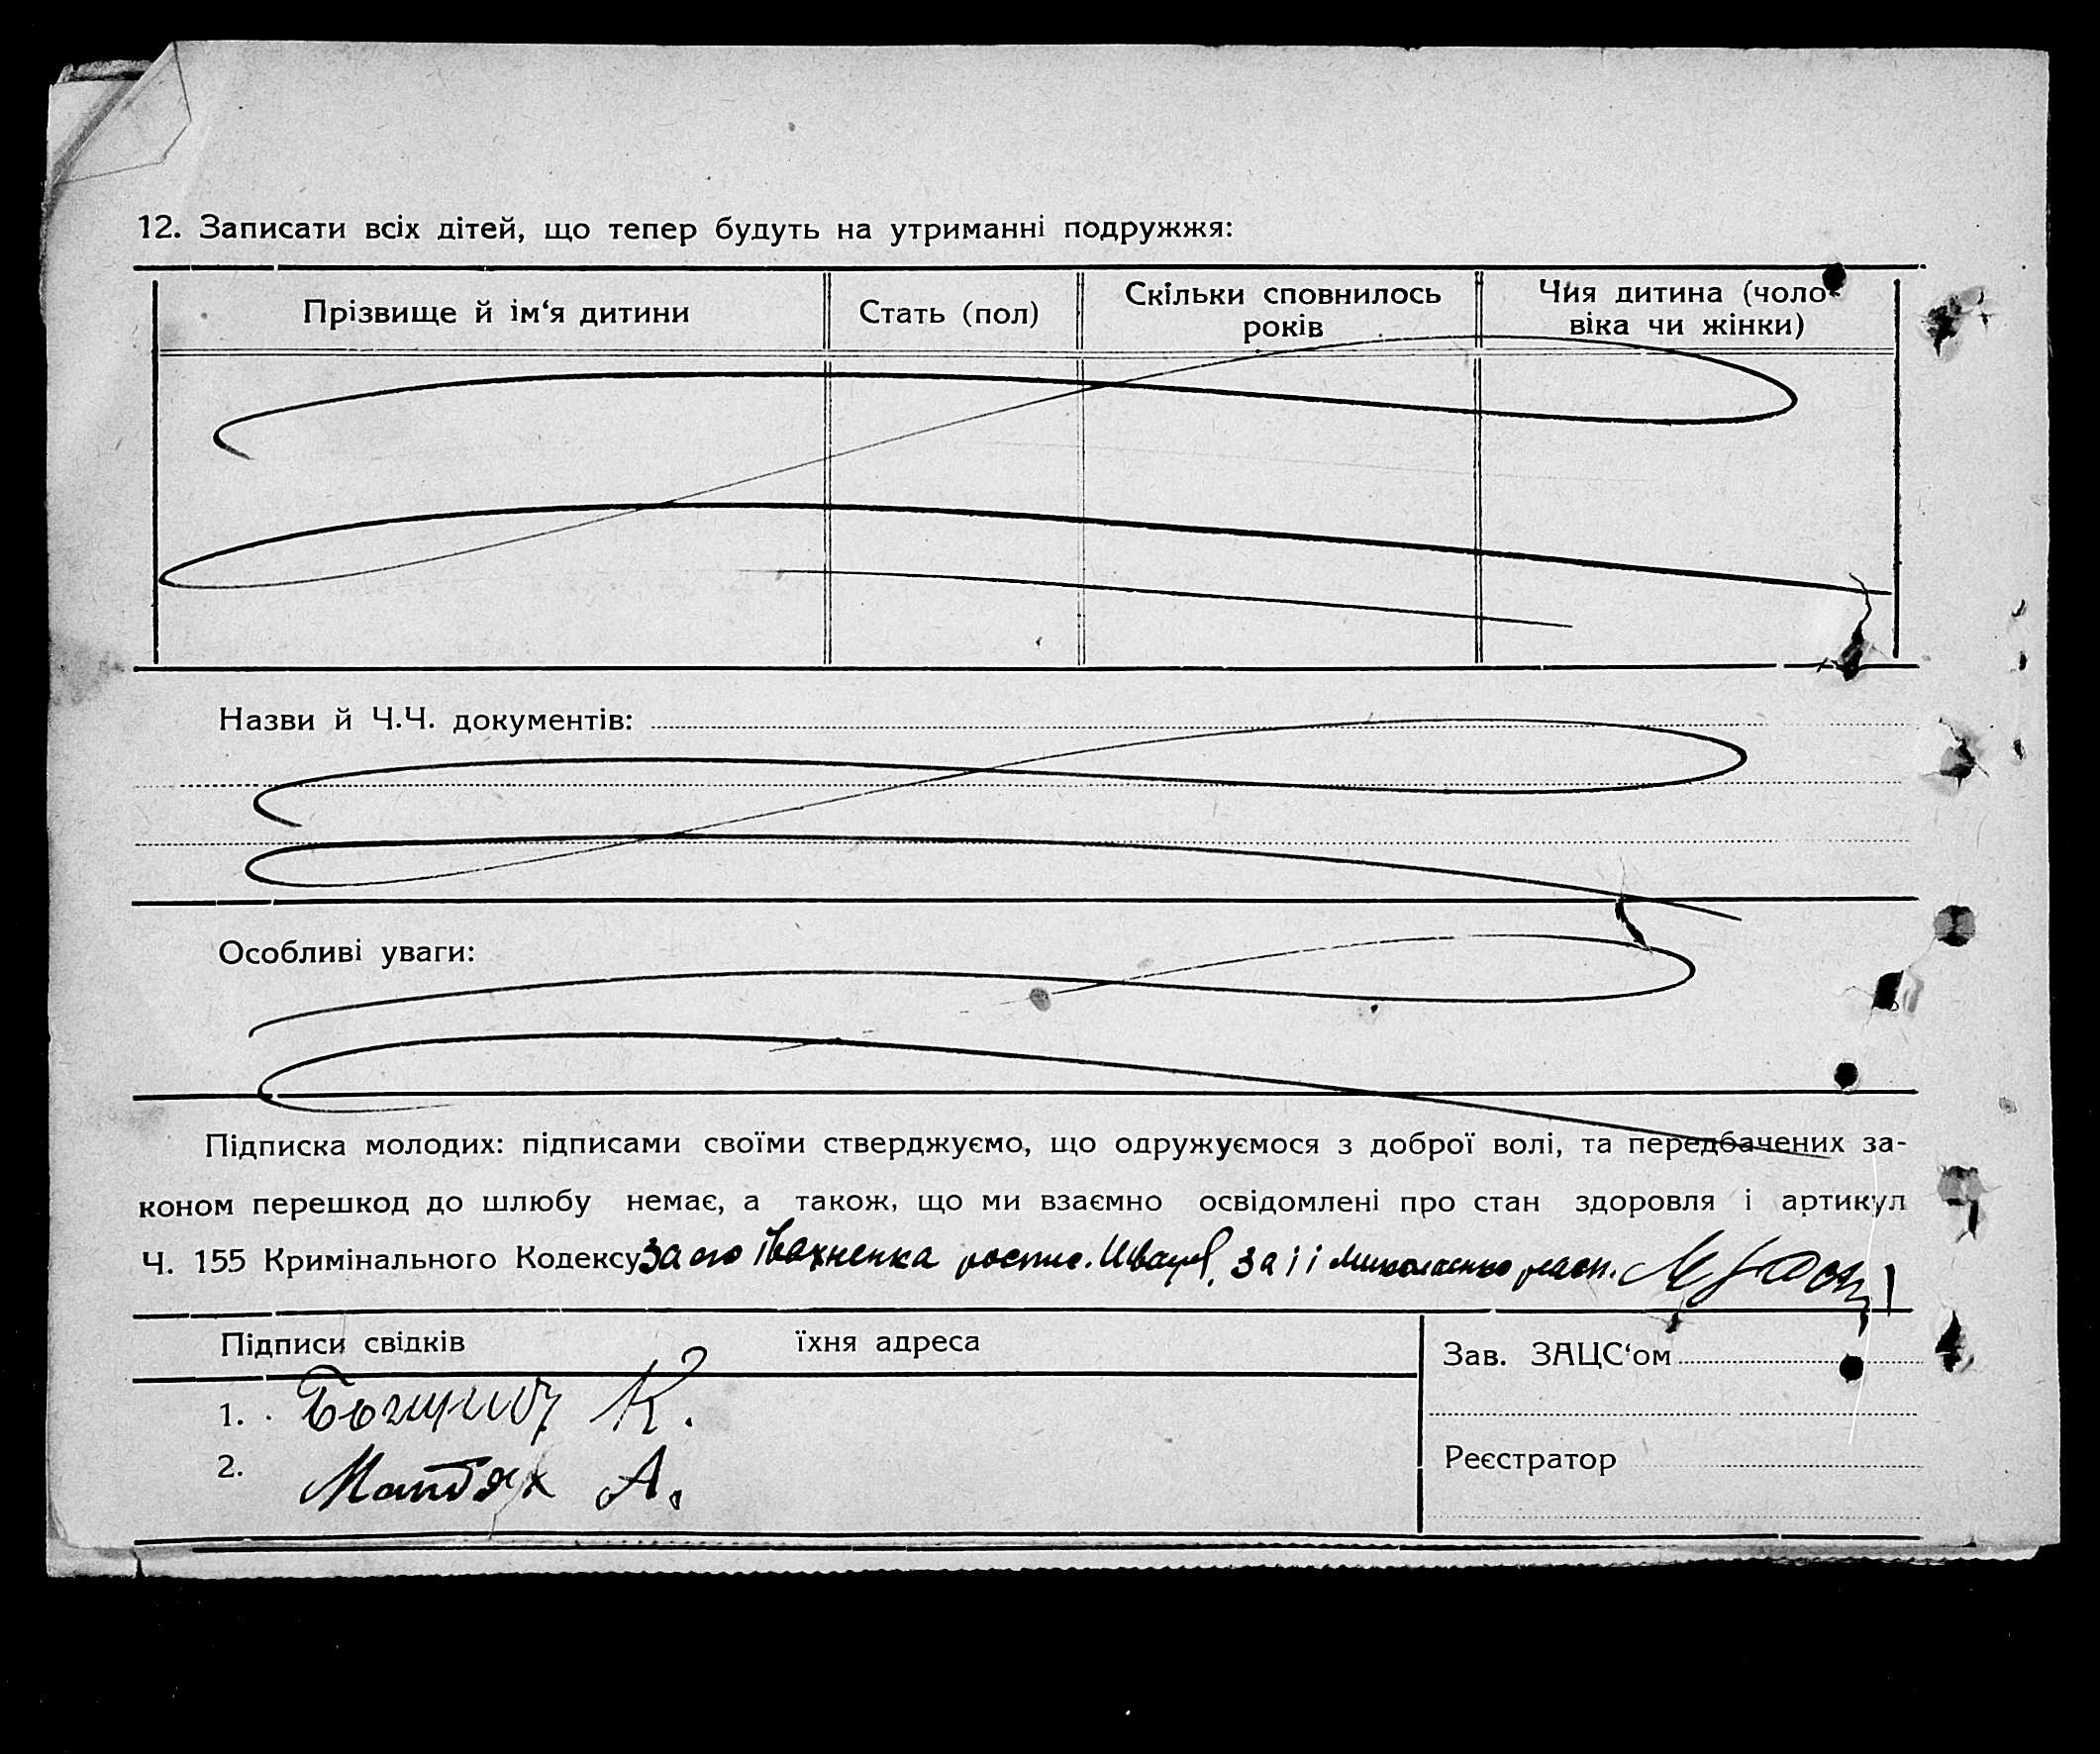 12. Записати всіх дітей, що тепер будуть на утриманні подружжя:
Прізвище й ім‘я дитини
Стать (пол)
Скільки сповнилось
років
Чия дитина (чоло-
віка чи жінки)
Назви й Ч.Ч. документів:
Особливі уваги:
Підписка молодих: підписами своїми стверджуємо, що одружуємося з доброї волі, та передбачених за-
коном перешкод до шлюбу немає, а також, що ми взаємно освідомлені про стан здоровля і артикул
Ч. 155 Кримінального Кодексу За Івахненка за її
Підписи свідків
їхня адреса
1. К.
2. А.
Зав. ЗАЦС‘ом
Реєстратор